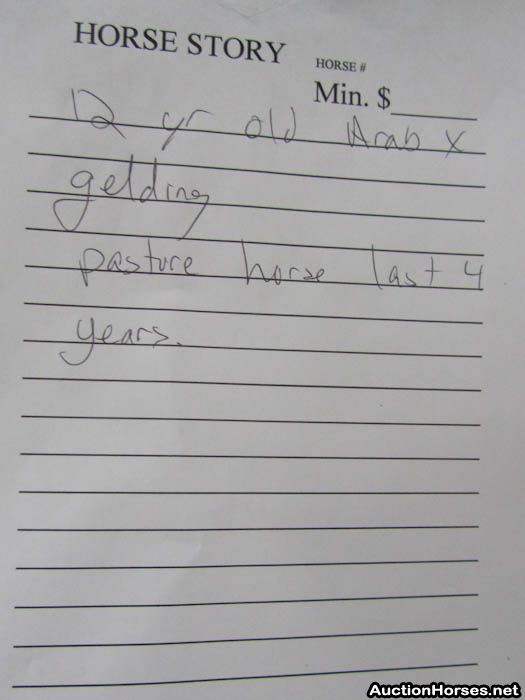 HORSE STORY
HORSE #
Min. $
12 yr old Arab X
gelding
pasture horse last 4
years.
AuctionHorses.net